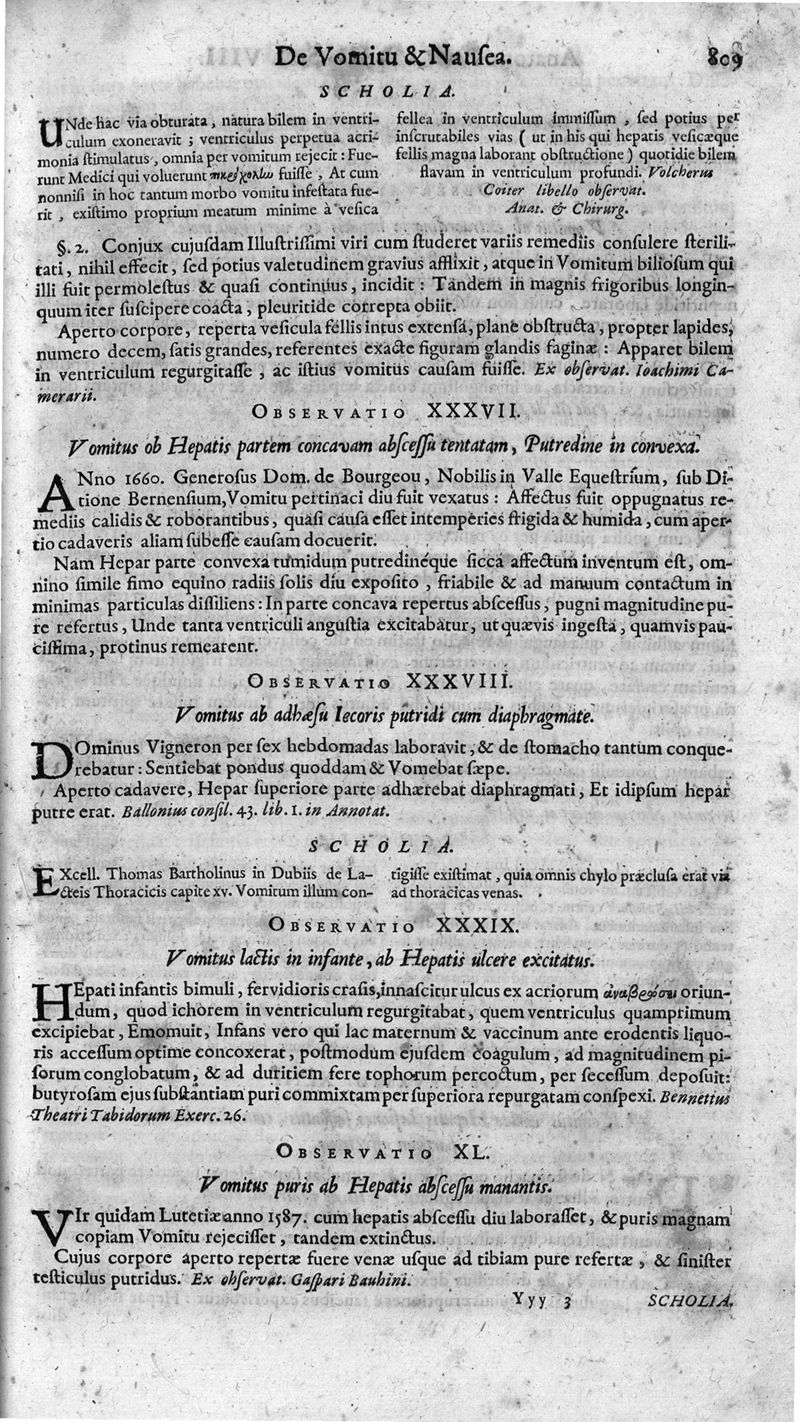 De Vomitu & Nauſea. 809
SCHOLIA.
UNde hac via obturata, natura bilem in ventri-
culum exoneravit; ventriculus perpetua acri-
monia ſtimulatus, omnia per vomitum rejecit: Fue-
runt Medici qui voluerunt fuiſſe, At cum
nonniſi in hoc tantum morbo vomitu infeſtata fue-
rit, exiſtimo proprium meatum minime à veſica
fellea in ventriculum immiſſum, ſed potius per
inſcrutabiles vias (ut in his qui hepatis veſicæque
fellis magna laborant obſtructione) quotidie bilem
flavam in ventriculum profundi. Volcherus
Coiter libello obſervat.
Anat. & Chirurg.
§. 2. Conjux cujuſdam Illuſtriſſimi viri cum ſtuderet variis remediis conſulere ſterili-
tati, nihil effecit, ſed potius valetudinem gravius afflixit, atque in Vomitum bilioſum qui
illi fuit permoleſtus & quaſi continuus, incidit: Tandem in magnis frigoribus longin-
quum iter ſuſcipere coacta, pleuritide correpta obiit.
Aperto corpore, reperta veſicula fellis intus extenſa, plane obſtructa, propter lapides,
numero decem, ſatis grandes, referentes exacte figuram glandis faginæ: Apparet bilem
in ventriculum regurgitaſſe, ac iſtius vomitus cauſam fuiſſe. Ex obſervat. Ioachimi Ca-
merarii.
OBSERVATIO XXXVII.
Vomitus ob Hepatis partem concavam abſceſſu tentatam, Putredine in convexa.
ANno 1660. Generoſus Dom. de Bourgeou, Nobilis in Valle Equeſtrium, ſub Di-
tione Bernenſium, Vomitu pertinaci diu fuit vexatus: Affectus fuit oppugnatus re-
mediis calidis & roborantibus, quaſi cauſa eſſet intemperies frigida & humida, cum aper-
tio cadaveris aliam ſubeſſe cauſam docuerit.
Nam Hepar parte convexa tumidum putredinéque ſicca affectum inventum eſt, om-
nino ſimile fimo equino radiis ſolis diu expoſito, friabile & ad manuum contactum in
minimas particulas diſſiliens: In parte concava repertus abſceſſus, pugni magnitudine pu-
re refertus, Unde tanta ventriculi anguſtia excitabatur, ut quævis ingeſta, quamvis pau-
ciſſima, protinus remearent.
OBSERVATIO XXXVIII.
Vomitus ab adhæſu Iecoris putridi cum diaphragmate.
DOminus Vigneron per ſex hebdomadas laboravit, & de ſtomacho tantum conque-
rebatur: Sentiebat pondus quoddam & Vomebat ſæpe.
Aperto cadavere, Hepar ſuperiore parte adhærebat diaphragmati, Et idipſum hepar
putre erat. Ballonius conſil. 43. lib. 1. in Annotat.
SCHOLIA.
EXcell. Thomas Bartholinus in Dubiis de La-
cteis Thoracicis capite xv. Vomitum illum con-
tigiſſe exiſtimat, quia omnis chylo præcluſa erat via
ad thoracicas venas.
OBSERVATIO XXXIX.
Vomitus lactis in infante, ab Hepatis ulcere excitatus.
HEpati infantis bimuli, fervidioris craſis, innaſcitur ulcus ex acriorum oriun-
dum, quod ichorem in ventriculum regurgitabat, quem ventriculus quamprimum
excipiebat, Emomuit, Infans vero qui lac maternum & vaccinum ante erodentis liquo-
ris acceſſum optime concoxerat, poſtmodum ejuſdem coagulum, ad magnitudinem pi-
ſorum conglobatum, & ad duritiem fere tophorum percoctum, per ſeceſſum depoſuit:
butyroſam ejus ſubſtantiam puri commixtam per ſuperiora repurgatam conſpexi. Bennetius
Theatri Tabidorum Exerc. 26.
OBSERVATIO XL.
Vomitus puris ab Hepatis abſceſſu manantis.
VIr quidam Lutetiæ anno 1587. cum hepatis abſceſſu diu laboraſſet, & puris magnam
copiam Vomitu rejeciſſet, tandem extinctus.
Cujus corpore aperto repertæ fuere venæ uſque ad tibiam pure refertæ, & ſiniſter
teſticulus putridus. Ex obſervat. Gaſpari Bauhini.
Yyy 3 SCHOLIA.